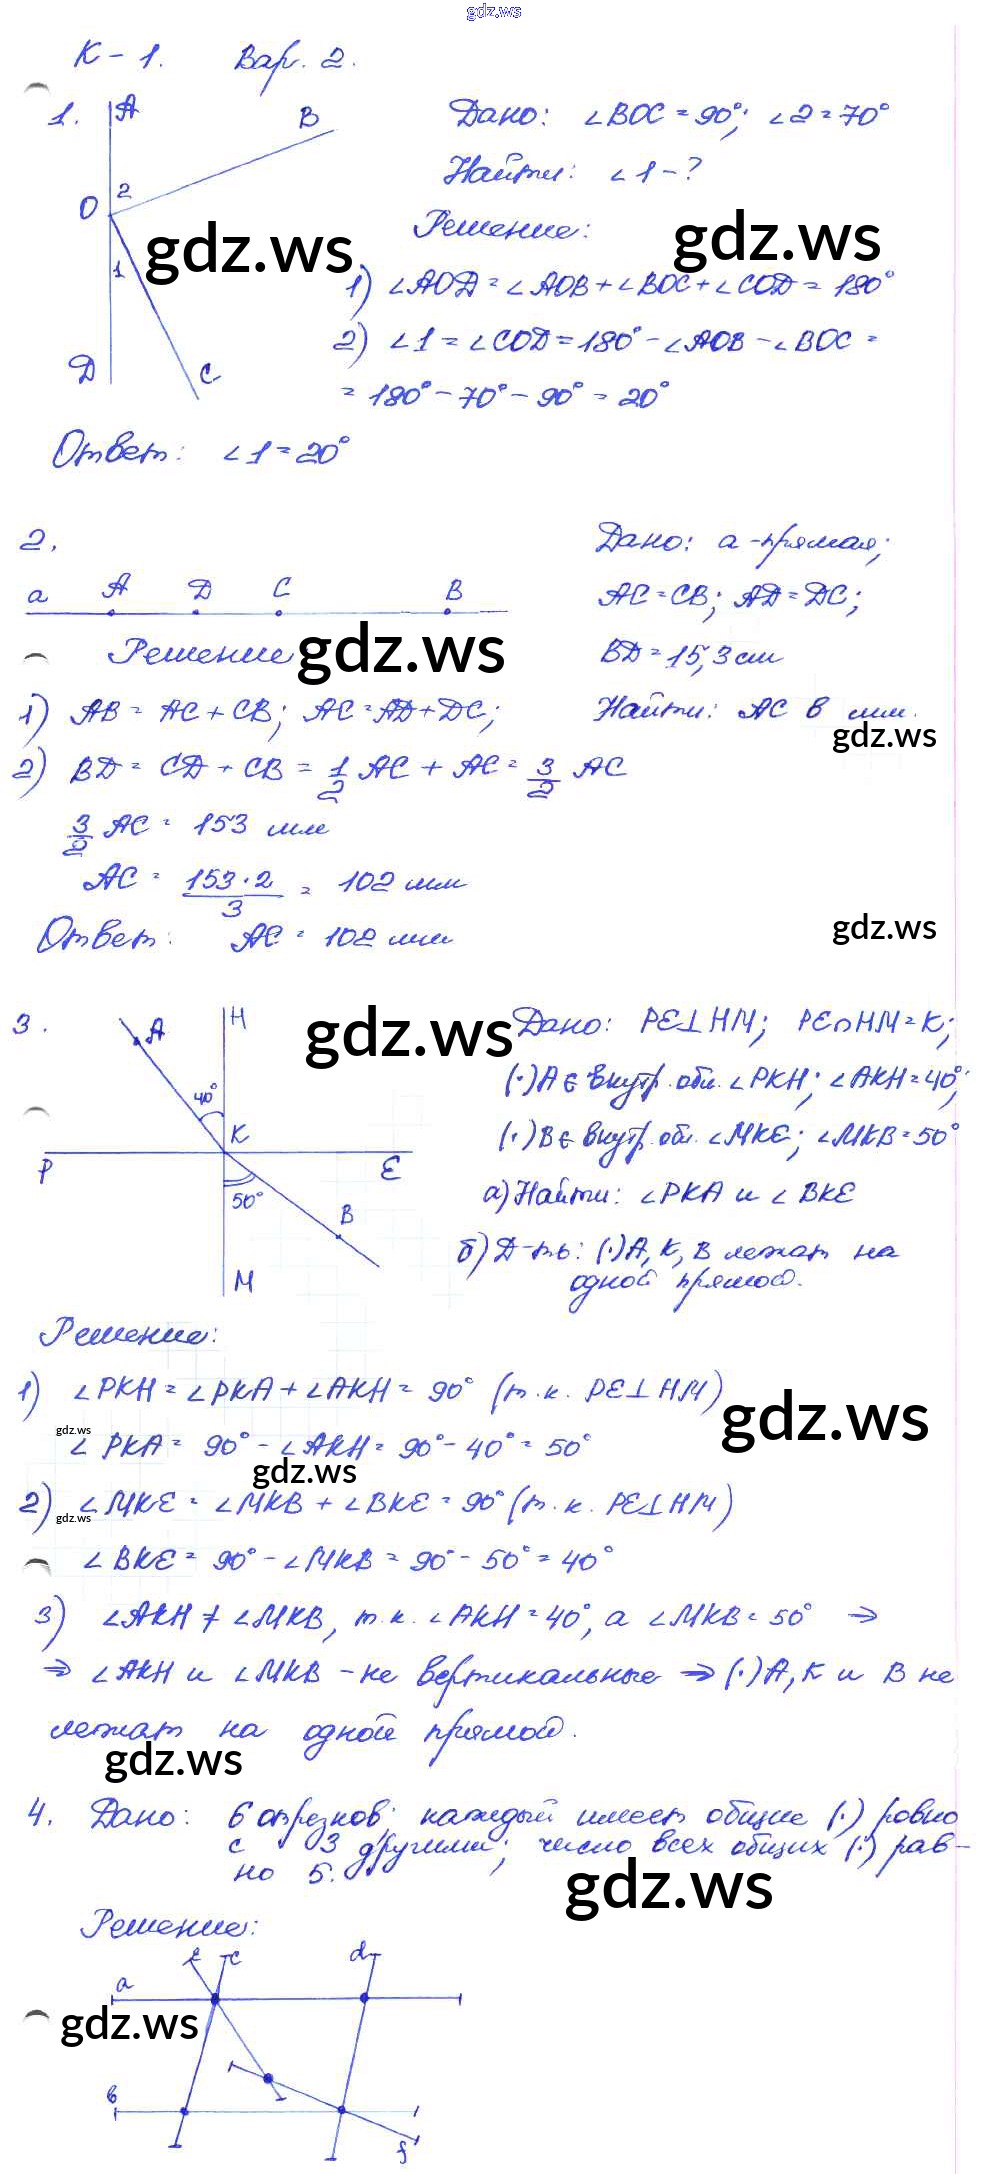 gdz.ws
К-1. Вар. 2.
1. A B O 2 1 D C
Дано: ∠BOC = 90°; ∠2 = 70°
Найти: ∠1 - ?
Решение:
gdz.ws gdz.ws
1) ∠AOD = ∠AOB + ∠BOC + ∠COD = 180°
2) ∠1 = ∠COD = 180° - ∠AOB - ∠BOC =
= 180° - 70° - 90° = 20°
Ответ: ∠1 = 20°
2.
a A D C B
Дано: a - прямая;
AC = CB; AD = DC;
BD = 15,3 см
Найти: AC в мм.
Решение
gdz.ws
1) AB = AC + CB; AC = AD + DC;
gdz.ws
2) BD = CD + CB = 1/2 AC + AC = 3/2 AC
3/2 AC = 153 мм
AC = 153·2/3 = 102 мм
Ответ: AC = 102 мм
gdz.ws
3. A H 40° K P E 50° B M
gdz.ws
Дано: PE⊥HM; PE∩HM = K;
(·)A ∈ внутр. обл. ∠PKH; ∠AKH = 40°;
(·)B ∈ внутр. обл. ∠MKE; ∠MKB = 50°
а) Найти: ∠PKA и ∠BKE
б) Д-ть: (·)A, K, B лежат на
одной прямой.
Решение:
1) ∠PKH = ∠PKA + ∠AKH = 90° (т.к. PE⊥HM)
gdz.ws gdz.ws
∠PKA = 90° - ∠AKH = 90° - 40° = 50°
gdz.ws
2) ∠MKE = ∠MKB + ∠BKE = 90° (т.к. PE⊥HM)
gdz.ws
∠BKE = 90° - ∠MKB = 90° - 50° = 40°
3) ∠AKH ≠ ∠MKB, т.к. ∠AKH = 40°, а ∠MKB = 50° ⇒
⇒ ∠AKH и ∠MKB - не вертикальные ⇒ (·)A, K и B не
лежат на одной прямой.
gdz.ws
4. Дано: 6 отрезков; каждый имеет общие (·) ровно
с 3 другими; число всех общих (·) рав-
но 5.
gdz.ws
Решение:
a e c d
gdz.ws
b f